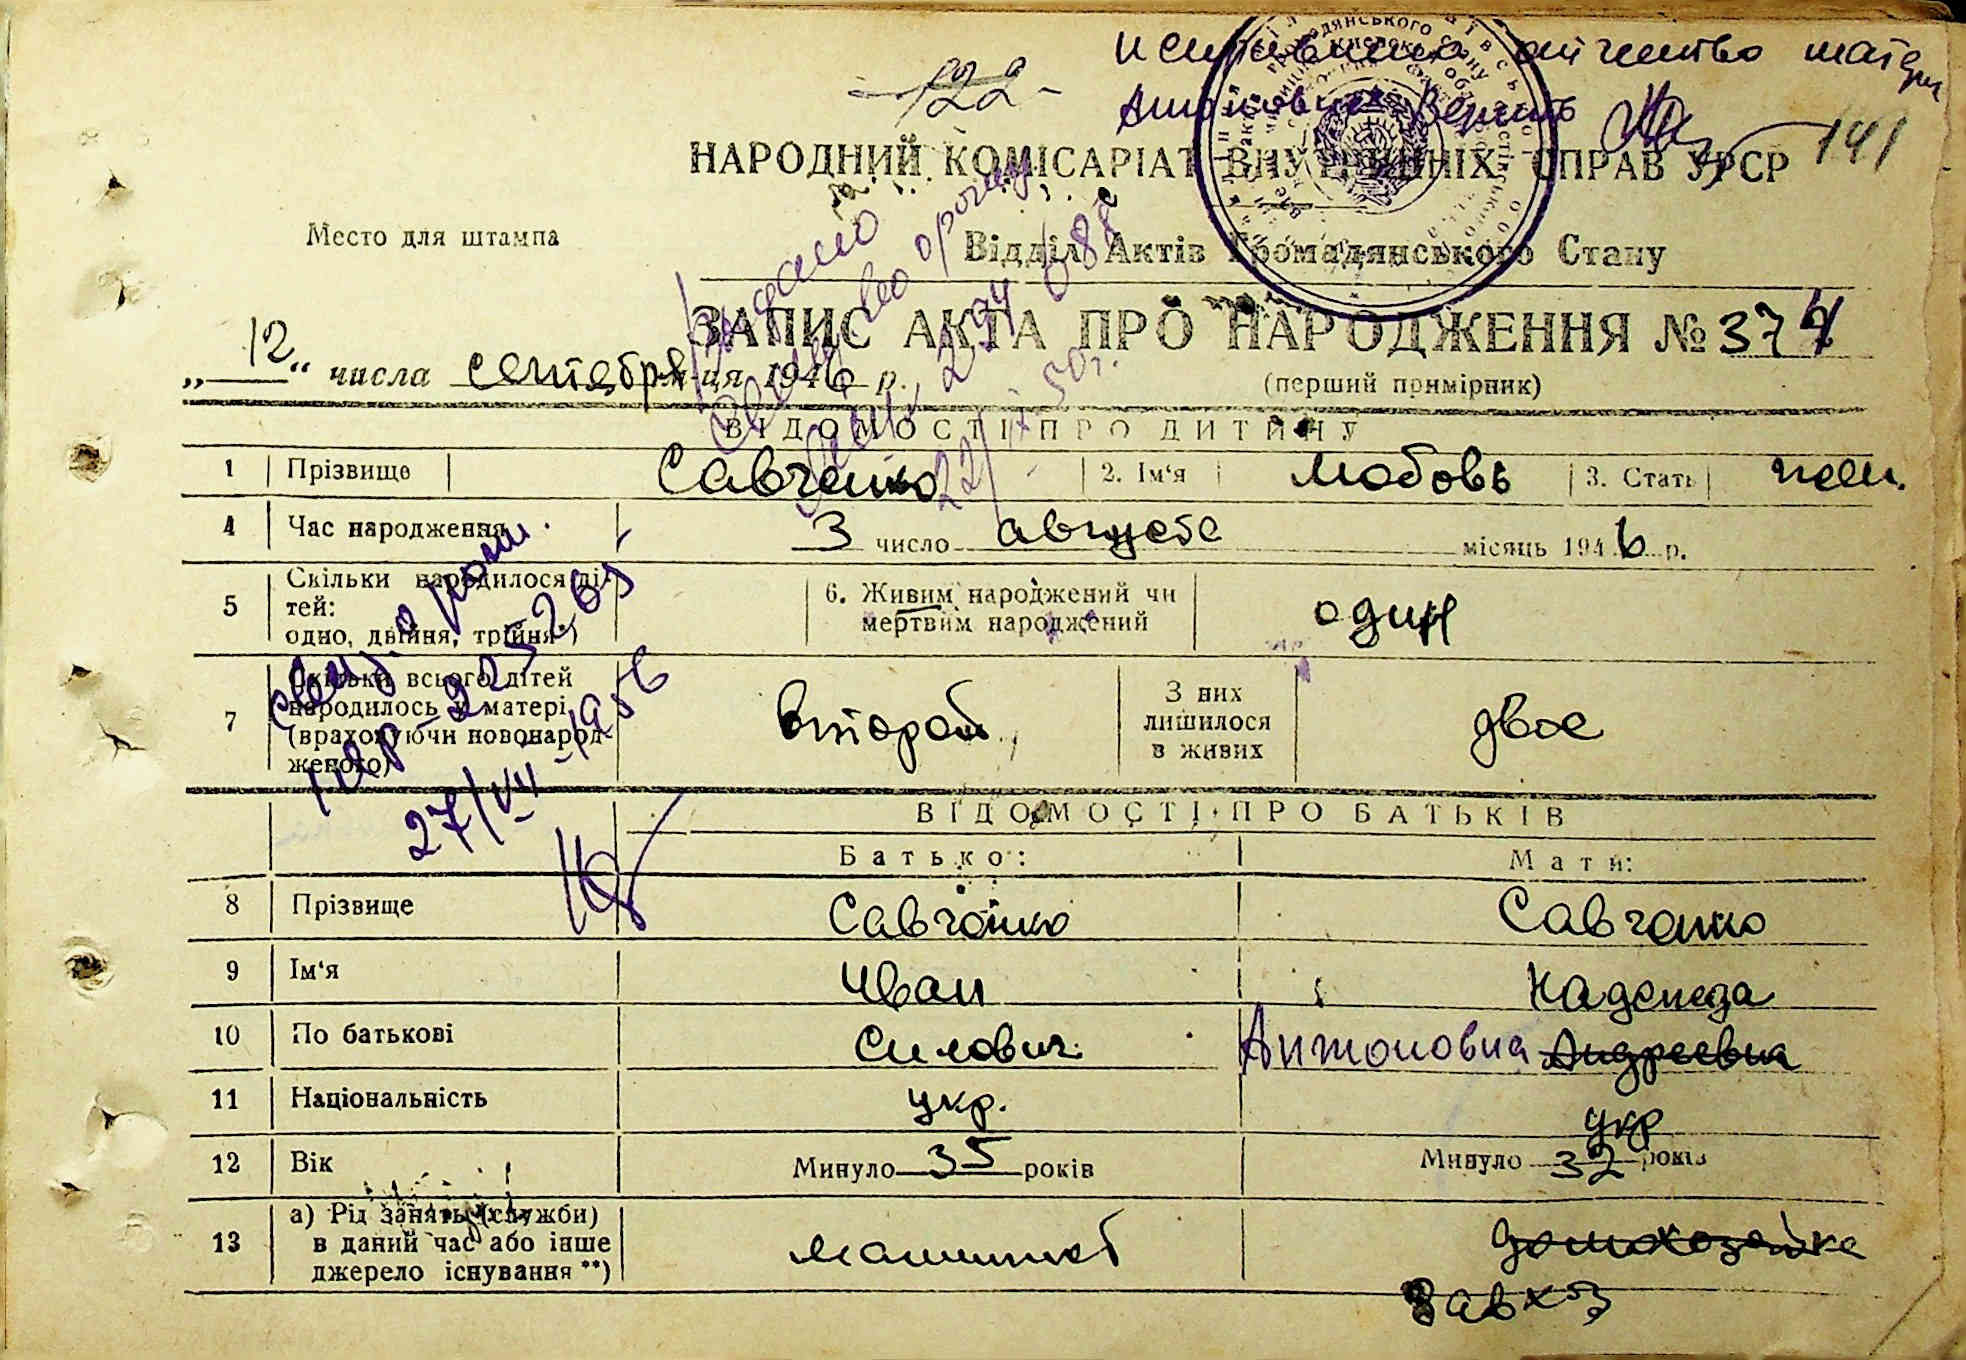 122
исправлено отчество матери
Антоновна Верить
141
НАРОДНИЙ КОМІСАРІАТ ВНУТРІШНІХ СПРАВ УРСР
Место для штампа
Відділ Актів Громадянського Стану
ЗАПИС АКТА ПРО НАРОДЖЕННЯ № 374
„12“ числа сентября м-ця 1946 р.
(перший примірник)
ВІДОМОСТІ ПРО ДИТИНУ
1 Прізвище Савченко 2. Ім‘я Любовь 3. Стать жен.
4 Час народження 3 число августа місяць 1946 р.
5 Скільки народилося ді-
тей:
одно, двійня, трійня.)
6. Живим народжений чи
мертвим народжений
один
7 Скільки всього дітей
народилось у матері
(враховуючи новонарод-
женого)
второй
З них
лишилося
в живих
двое
27/VII-1956
ВІДОМОСТІ ПРО БАТЬКІВ
Батько: Мати:
8 Прізвище Савченко Савченко
9 Ім‘я Иван Надежда
10 По батькові Силович Антоновна Андреевна
11 Національність укр. укр
12 Вік Минуло 35 років Минуло 32 років
13 а) Рід занять (служби)
в даний час або інше
джерело існування **)
машинист домохозяйка
Завхоз